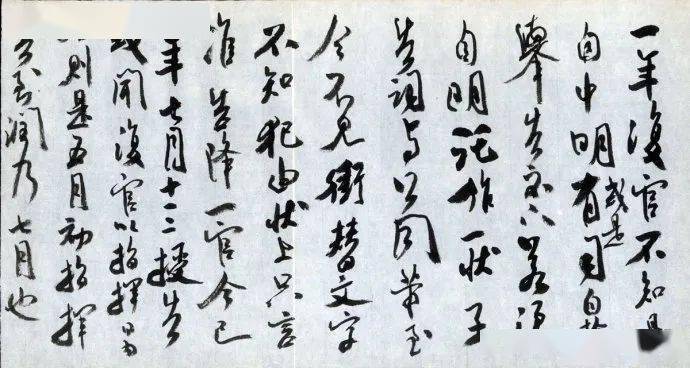 一年復官不知是
自申明有司自
或是
舉告示不若須
自明託作一狀子
告詞与公同葉至
今不見衝替文字
不知犯由狀上只言
准告降一官今已
年七月十二授告
或聞復官以指揮
則是五月初指揮
潤乃七月也